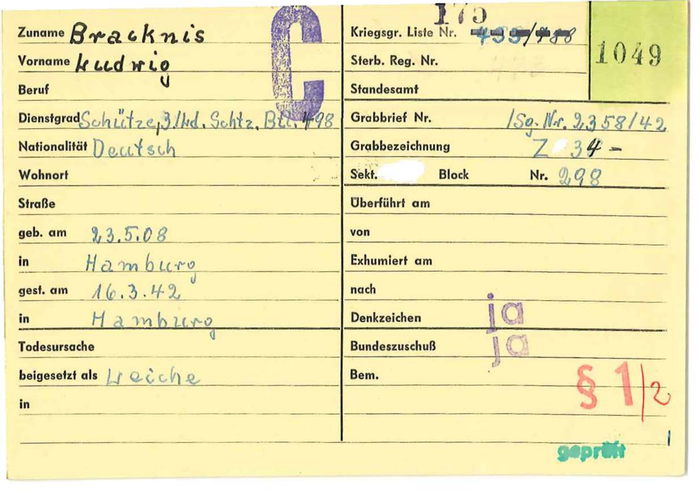 Zuname Bracknis
Vorname Ludwig
Beruf
Dienstgrad Schütze, 3./Ld. Schtz. Btl. 498
Nationalität Deutsch
Wohnort
Straße
geb. am 23.5.08
in Hamburg
gest. am 16.3.42
in Hamburg
Todesursache
beigesetzt als Leiche
in
C
175
Kriegsgr. Liste Nr.
1049
Sterb. Reg. Nr.
Standesamt
Grabbrief Nr. /Sg. Nr. 2358/42
Grabbezeichnung Z 34 -
Sekt. Block Nr. 298
Überführt am
von
Exhumiert am
nach
Denkzeichen ja
Bundeszuschuß ja
Bem.
§ 1/2
geprüft